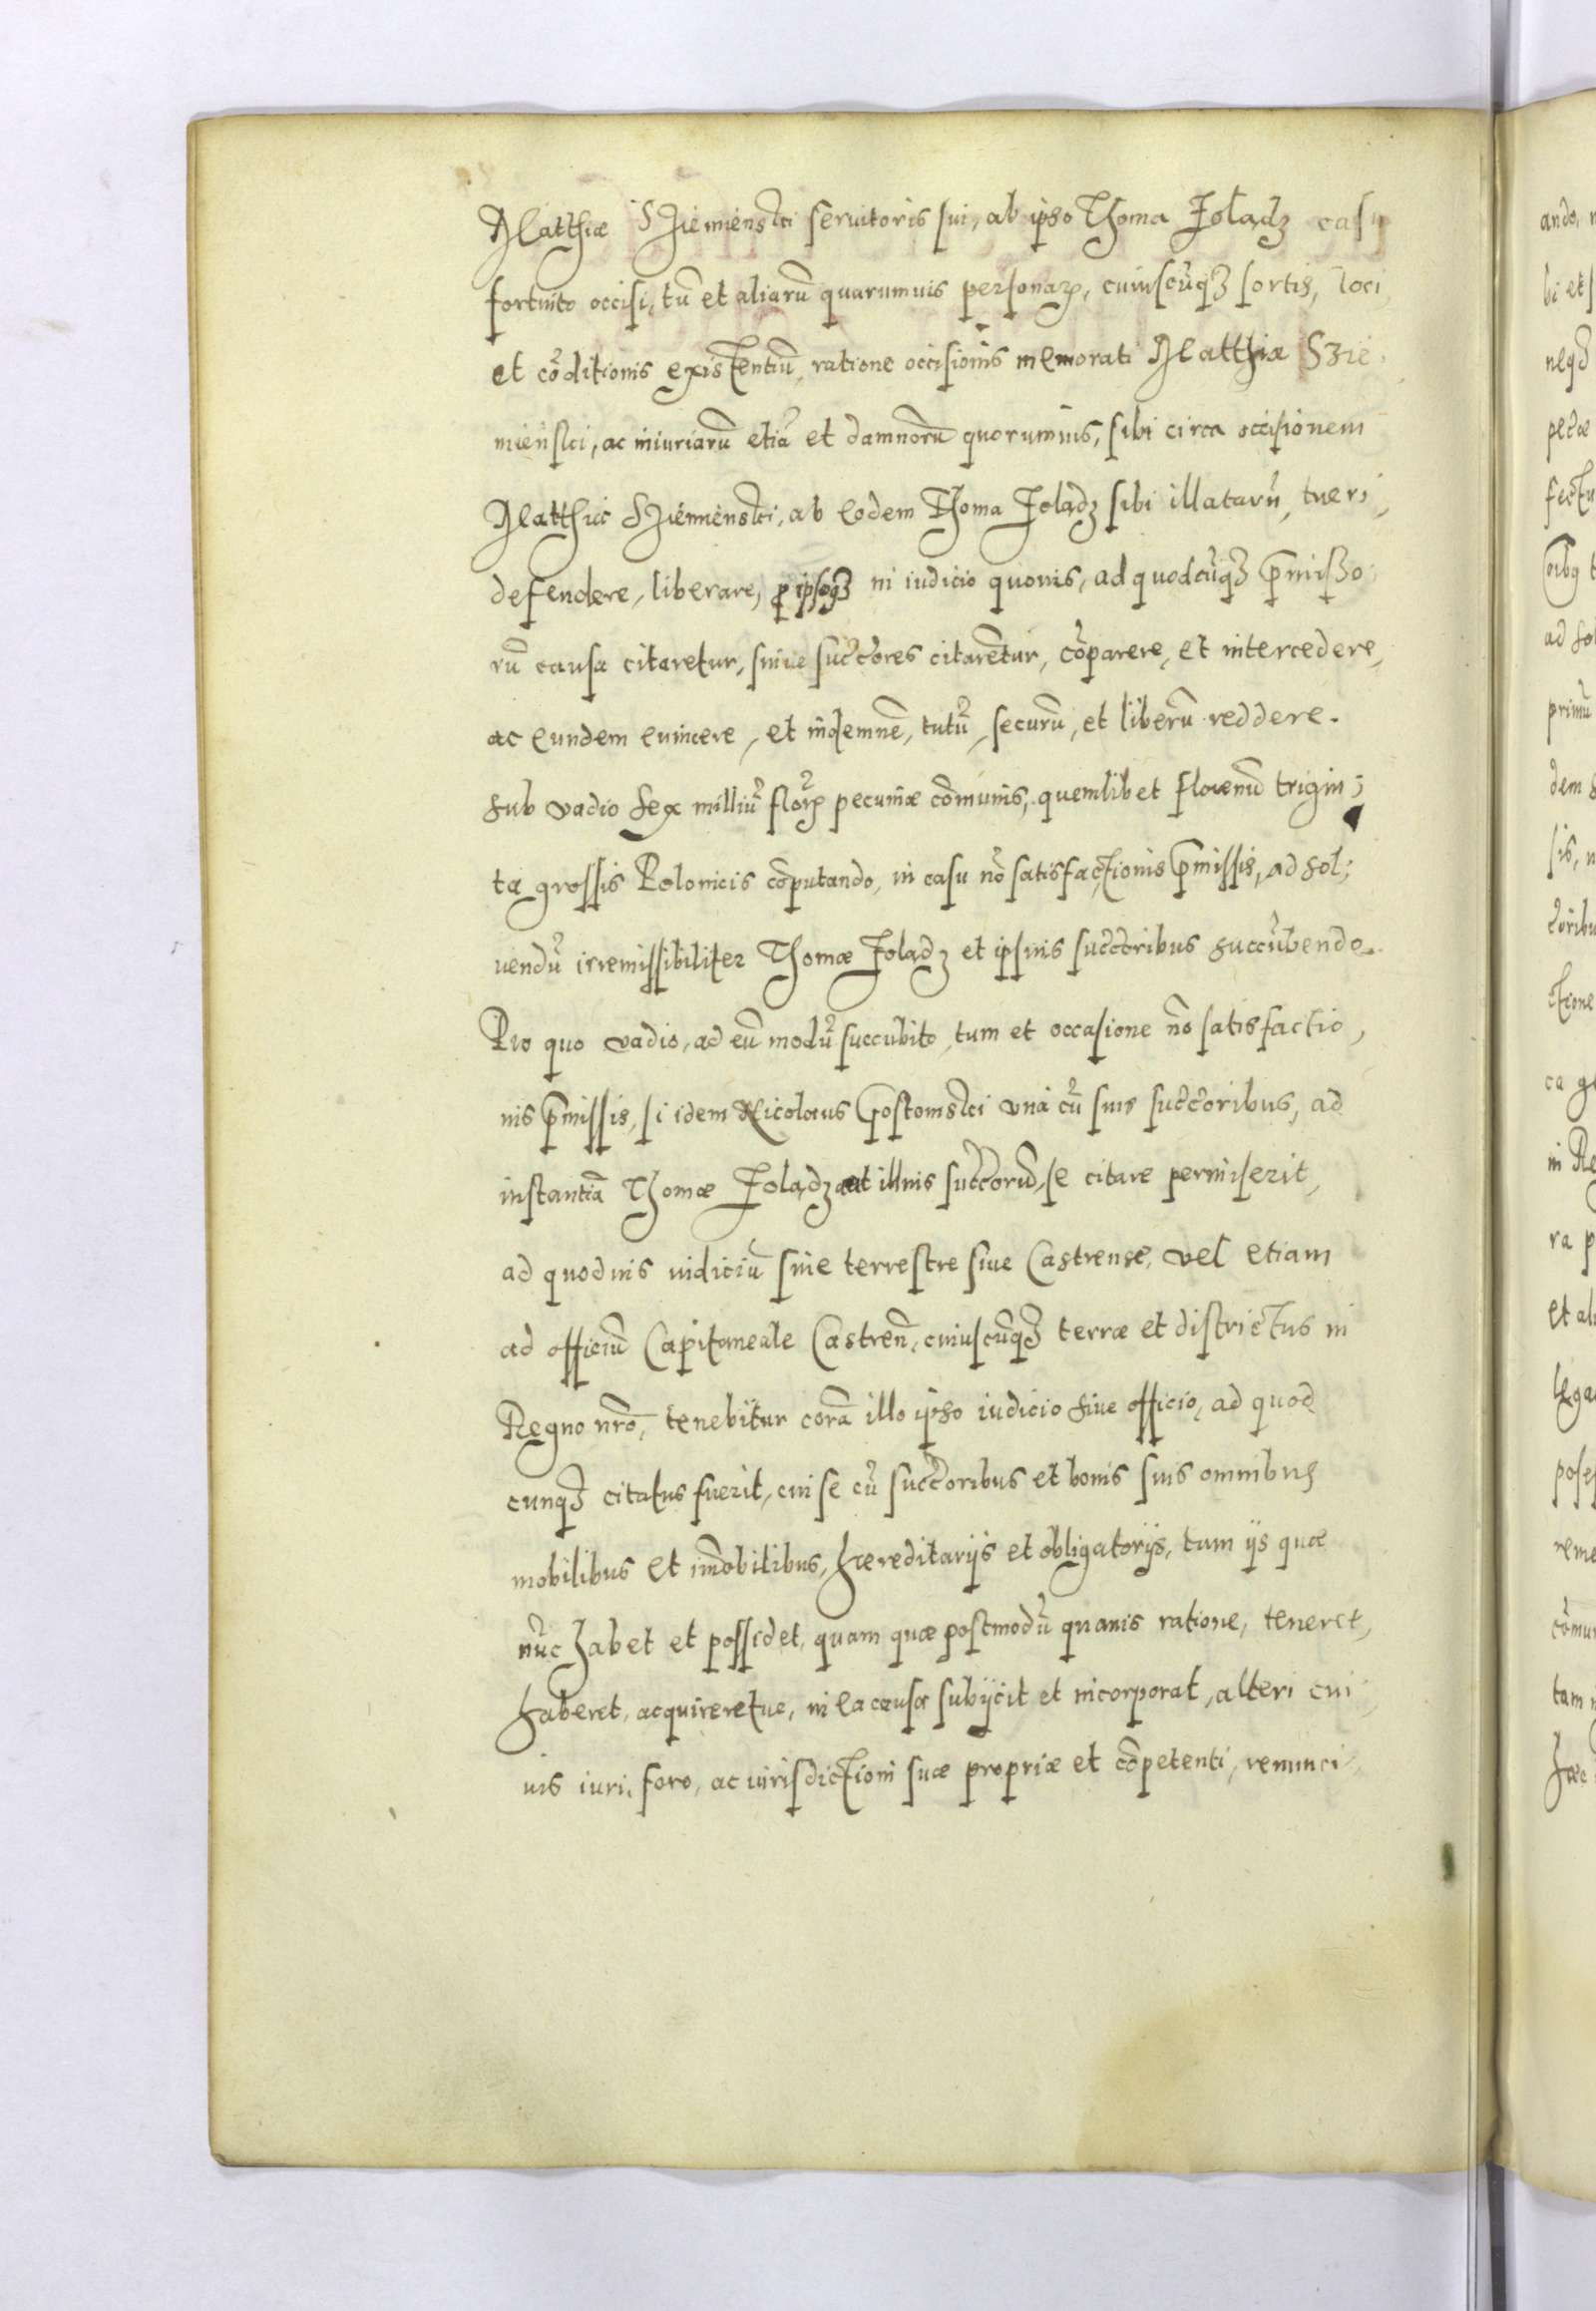 Matthiæ Sziemienski seruitoris sui, ab ipso Thoma Żolądz casu
fortuito occisi, tū et aliarū quarumuis personaꝝ, cuiuscūqꝫ sortis, loci
et cōditionis existentiū, ratione occisionis memorati Matthiæ Szie
mienski, ac iniuriarū etiā et damnorū quorumuis, sibi circa occisionem
Matthiæ Sziemienski, ab eodem Thoma Żolądz sibi illatarū, tueri,
defendere, liberare, ꝓ ipsoqꝫ in iudicio quouis, ad quodcūqꝫ p̄misso
rū causa citaretur, siue succ̄ores citarētur, cōparere, et intercedere,
ac eundem euincere, et indemnē, tutū, securū, et liberū reddere.
sub vadio sex milliū floꝝ pecuniæ cōmunis, quemlibet florenū trigin;
ta grossis Polonicis cōputando, in casu nō satisfactionis p̄missis, ad sol;
uendū irremissibiliter Thomæ Żolądz et ipsius succ̄oribus succūbendo.
Pro quo vadio, ad eū modū succubito, tum et occasione nō satisfactio,
nis p̄missis, si idem Nicolaus Gostomski vnà cū suis succ̄oribus, ad
instantiā Thomæ Żolądz aut illius succ̄orū, se citare permiserit,
ad quoduis iudiciū siue terrestre siue Castrense, vel etiam
ad officiū Capitaneale Castren̄, cuiuscūqꝫ terræ et districtus in
Regno nr̄o, tenebitur corā illo ipso iudicio siue officio, ad quod
cunqꝫ citatus fuerit, cui se cū succ̄oribus et bonis suis omnibus
mobilibus et im̄obilibus, hæreditarijs et obligatorijs, tum ijs quæ
nūc habet et possidet, quam quæ postmodū quauis ratione, teneret,
haberet, acquireretue, in ea causa subijcit et incorporat, alteri cui
uis iuri, foro, ac iurisdictioni suæ propriæ et cōpetenti, renunci